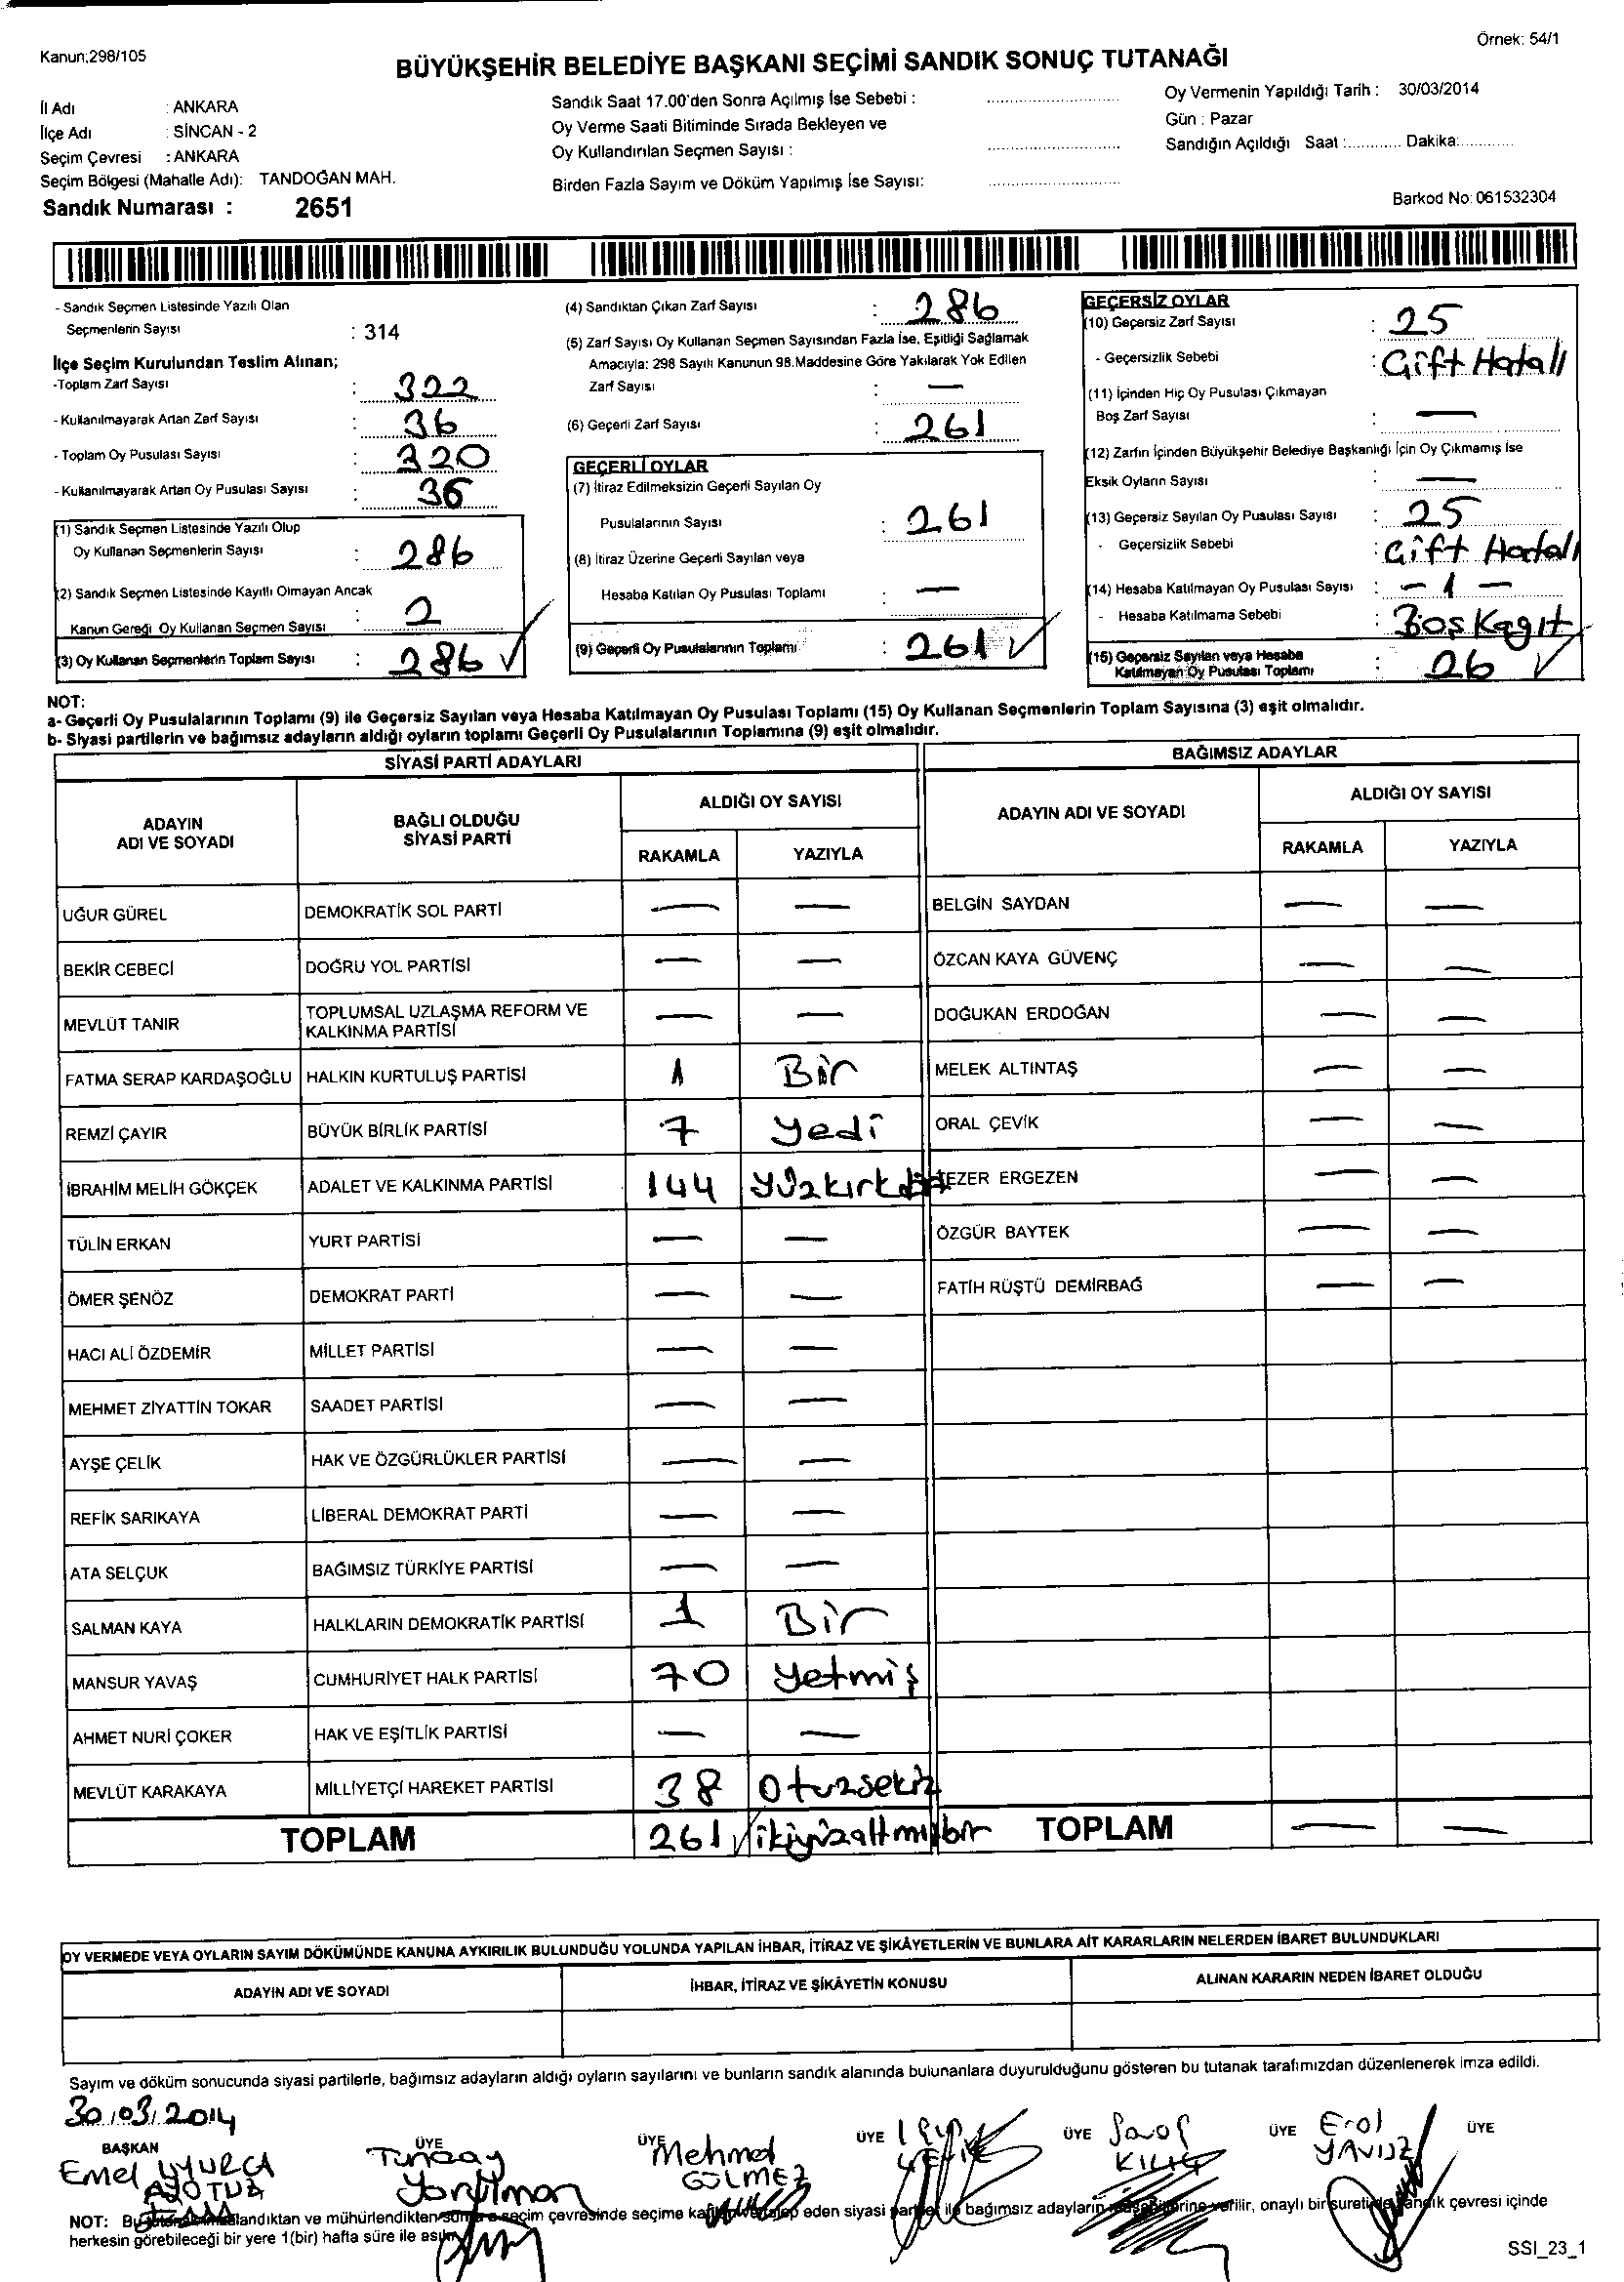 Kanun:298/105
Örnek: 54/1
BÜYÜKŞEHİR BELEDİYE BAŞKANI SEÇİMİ SANDIK SONUÇ TUTANAĞI
İl Adı : ANKARA
İlçe Adı : SİNCAN - 2
Seçim Çevresi : ANKARA
Seçim Bölgesi (Mahalle Adı): TANDOĞAN MAH.
Sandık Numarası : 2651
Sandık Saat 17.00'den Sonra Açılmış İse Sebebi :
Oy Verme Saati Bitiminde Sırada Bekleyen ve
Oy Kullandırılan Seçmen Sayısı :
Birden Fazla Sayım ve Döküm Yapılmış İse Sayısı:
Oy Vermenin Yapıldığı Tarih : 30/03/2014
Gün : Pazar
Sandığın Açıldığı Saat :............ Dakika:............
Barkod No: 061532304
- Sandık Seçmen Listesinde Yazılı Olan
Seçmenlerin Sayısı : 314
İlçe Seçim Kurulundan Teslim Alınan;
-Toplam Zarf Sayısı : 322
- Kullanılmayarak Artan Zarf Sayısı : 36
- Toplam Oy Pusulası Sayısı : 320
- Kullanılmayarak Artan Oy Pusulası Sayısı : 36
(1) Sandık Seçmen Listesinde Yazılı Olup
Oy Kullanan Seçmenlerin Sayısı : 286
(2) Sandık Seçmen Listesinde Kayıtlı Olmayan Ancak
Kanun Gereği Oy Kullanan Seçmen Sayısı : 2
(3) Oy Kullanan Seçmenlerin Toplam Sayısı : 286
(4) Sandıktan Çıkan Zarf Sayısı : 286
(5) Zarf Sayısı Oy Kullanan Seçmen Sayısından Fazla İse, Eşitliği Sağlamak
Amacıyla: 298 Sayılı Kanunun 98.Maddesine Göre Yakılarak Yok Edilen
Zarf Sayısı : —
(6) Geçerli Zarf Sayısı : 261
GEÇERLİ OYLAR
(7) İtiraz Edilmeksizin Geçerli Sayılan Oy
Pusulalarının Sayısı : 261
(8) İtiraz Üzerine Geçerli Sayılan veya
Hesaba Katılan Oy Pusulası Toplamı : —
(9) Geçerli Oy Pusulalarının Toplamı : 261
GEÇERSİZ OYLAR
(10) Geçersiz Zarf Sayısı : 25
- Geçersizlik Sebebi : Çift Hatalı
(11) İçinden Hiç Oy Pusulası Çıkmayan
Boş Zarf Sayısı : —
(12) Zarfın İçinden Büyükşehir Belediye Başkanlığı İçin Oy Çıkmamış İse
Eksik Oyların Sayısı : —
(13) Geçersiz Sayılan Oy Pusulası Sayısı : 25
- Geçersizlik Sebebi : Çift Hatalı
(14) Hesaba Katılmayan Oy Pusulası Sayısı : - 1 -
- Hesaba Katılmama Sebebi : Boş Kagıt
(15) Geçersiz Sayılan veya Hesaba
Katılmayan Oy Pusulası Toplamı : 26
NOT:
a- Geçerli Oy Pusulalarının Toplamı (9) ile Geçersiz Sayılan veya Hesaba Katılmayan Oy Pusulası Toplamı (15) Oy Kullanan Seçmenlerin Toplam Sayısına (3) eşit olmalıdır.
b- Siyasi partilerin ve bağımsız adayların aldığı oyların toplamı Geçerli Oy Pusulalarının Toplamına (9) eşit olmalıdır.
SİYASİ PARTİ ADAYLARI
ADAYIN ADI VE SOYADI
BAĞLI OLDUĞU SİYASİ PARTİ
ALDIĞI OY SAYISI
RAKAMLA YAZIYLA
UĞUR GÜREL DEMOKRATİK SOL PARTİ — —
BEKİR CEBECİ DOĞRU YOL PARTİSİ — —
MEVLÜT TANIR TOPLUMSAL UZLAŞMA REFORM VE KALKINMA PARTİSİ — —
FATMA SERAP KARDAŞOĞLU HALKIN KURTULUŞ PARTİSİ 1 Bir
REMZİ ÇAYIR BÜYÜK BİRLİK PARTİSİ 7 yedi
İBRAHİM MELİH GÖKÇEK ADALET VE KALKINMA PARTİSİ 144 yüzkırkdört
TÜLİN ERKAN YURT PARTİSİ — —
ÖMER ŞENÖZ DEMOKRAT PARTİ — —
HACI ALİ ÖZDEMİR MİLLET PARTİSİ — —
MEHMET ZİYATTİN TOKAR SAADET PARTİSİ — —
AYŞE ÇELİK HAK VE ÖZGÜRLÜKLER PARTİSİ — —
REFİK SARIKAYA LİBERAL DEMOKRAT PARTİ — —
ATA SELÇUK BAĞIMSIZ TÜRKİYE PARTİSİ — —
SALMAN KAYA HALKLARIN DEMOKRATİK PARTİSİ 1 Bir
MANSUR YAVAŞ CUMHURİYET HALK PARTİSİ 70 yetmiş
AHMET NURİ ÇOKER HAK VE EŞİTLİK PARTİSİ — —
MEVLÜT KARAKAYA MİLLİYETÇİ HAREKET PARTİSİ 38 Otuzsekiz
TOPLAM 261 ikiyüzaltmışbir
BAĞIMSIZ ADAYLAR
ADAYIN ADI VE SOYADI
ALDIĞI OY SAYISI
RAKAMLA YAZIYLA
BELGİN SAYDAN — —
ÖZCAN KAYA GÜVENÇ — —
DOĞUKAN ERDOĞAN — —
MELEK ALTINTAŞ — —
ORAL ÇEVİK — —
EZER ERGEZEN — —
ÖZGÜR BAYTEK — —
FATİH RÜŞTÜ DEMİRBAĞ — —
TOPLAM — —
OY VERMEDE VEYA OYLARIN SAYIM DÖKÜMÜNDE KANUNA AYKIRILIK BULUNDUĞU YOLUNDA YAPILAN İHBAR, İTİRAZ VE ŞİKÂYETLERİN VE BUNLARA AİT KARARLARIN NELERDEN İBARET BULUNDUKLARI
ADAYIN ADI VE SOYADI
İHBAR, İTİRAZ VE ŞİKÂYETİN KONUSU
ALINAN KARARIN NEDEN İBARET OLDUĞU
Sayım ve döküm sonucunda siyasi partilerle, bağımsız adayların aldığı oyların sayılarını ve bunların sandık alanında bulunanlara duyurulduğunu gösteren bu tutanak tarafımızdan düzenlenerek imza edildi.
30/03/2014
BAŞKAN ÜYE ÜYE ÜYE ÜYE ÜYE ÜYE
Emel
Tuncay
Mehmet GÜLMEZ
Savaş KILIÇ
Erol YAVUZ
NOT: landıktan ve mühürlendikten seçim çevresinde seçime eden siyasi ile bağımsız adayların verilir, onaylı bir sureti çevresi içinde
herkesin görebileceği bir yere 1(bir) hafta süre ile
SSI_23_1